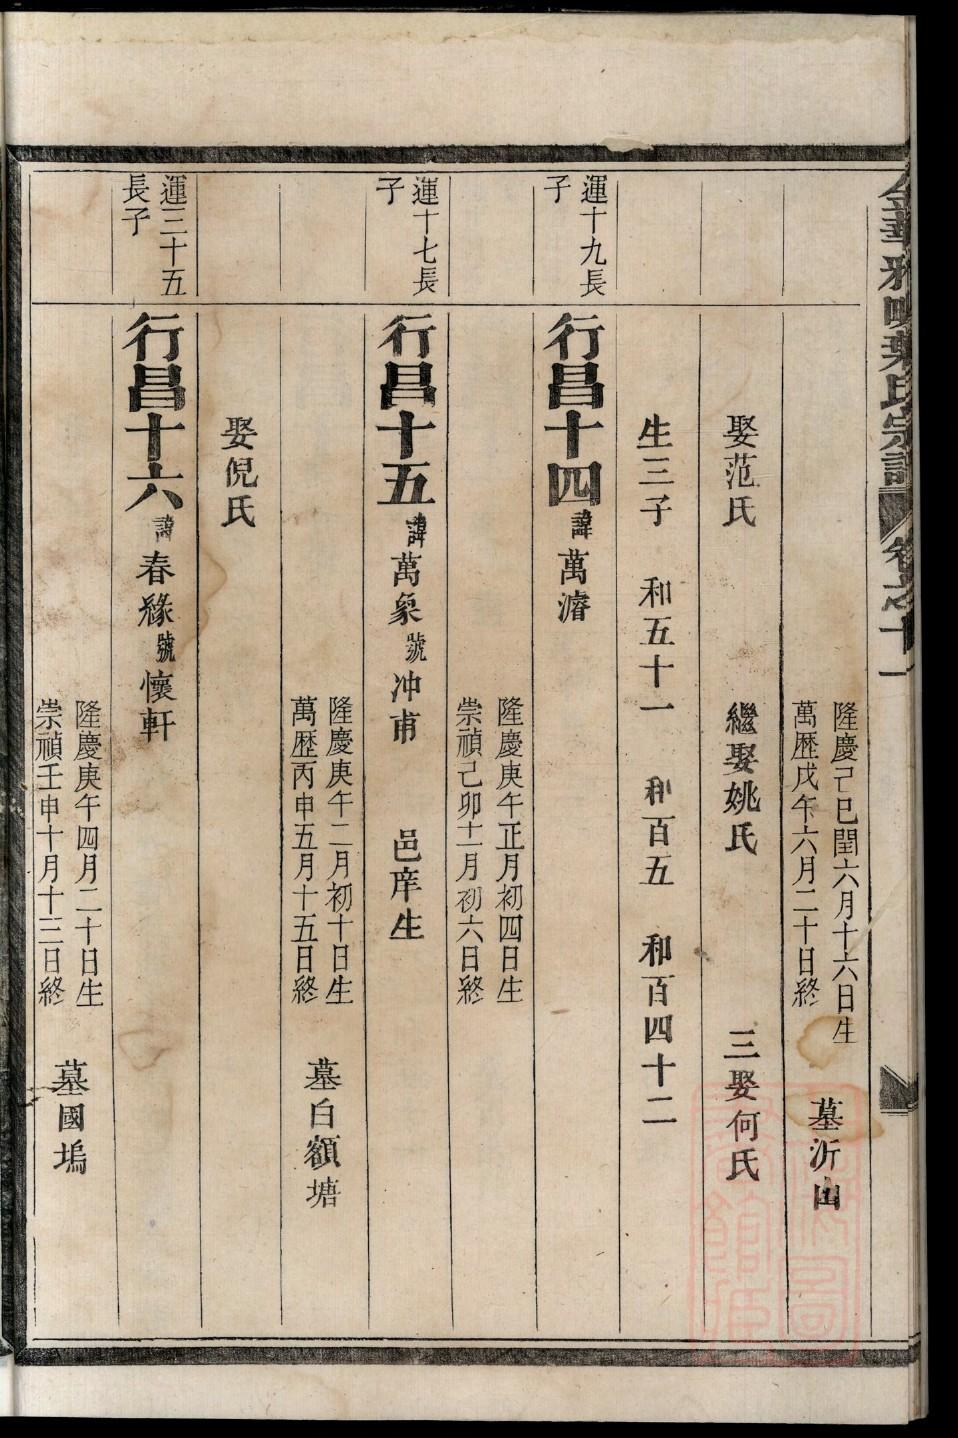 金華雅畈葉氏宗譜 卷之十一
隆慶己巳閏六月十六日生
萬歴戊午六月二十日終
墓沂山
娶范氏 繼娶姚氏 三娶何氏
生三子 和五十一 和百五 和百四十二
運十九長
子
行昌十四 諱萬濬
隆慶庚午正月初四日生
崇禎己卯十一月初六日終
運十七長
子
行昌十五 諱萬象 號冲甫 邑庠生
隆慶庚午二月初十日生
萬歴丙申五月十五日終
墓白額塘
娶倪氏
運三十五
長子
行昌十六 諱春緣 號懷軒
隆慶庚午四月二十日生
崇禎壬申十月十三日終
墓國塢